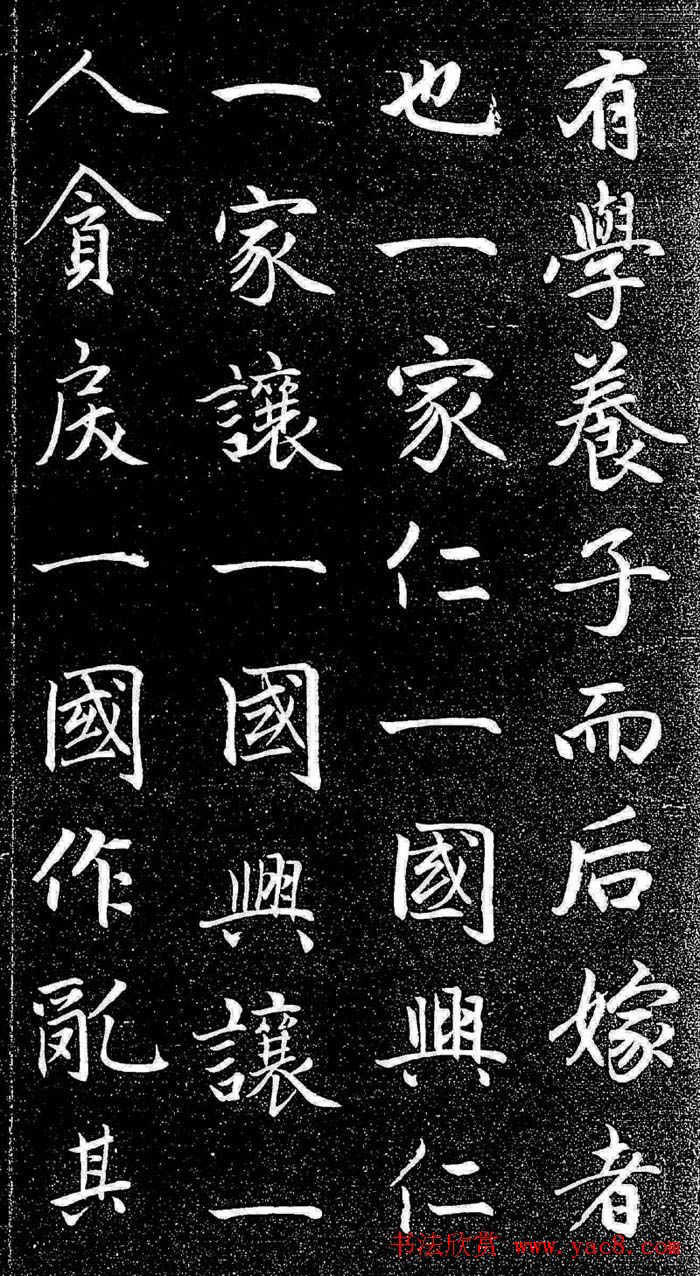 有學養子而后嫁者
也一家仁一國興仁
一家讓一國興讓一
人貪戾一國作亂其
书法欣赏 www.yac8.com